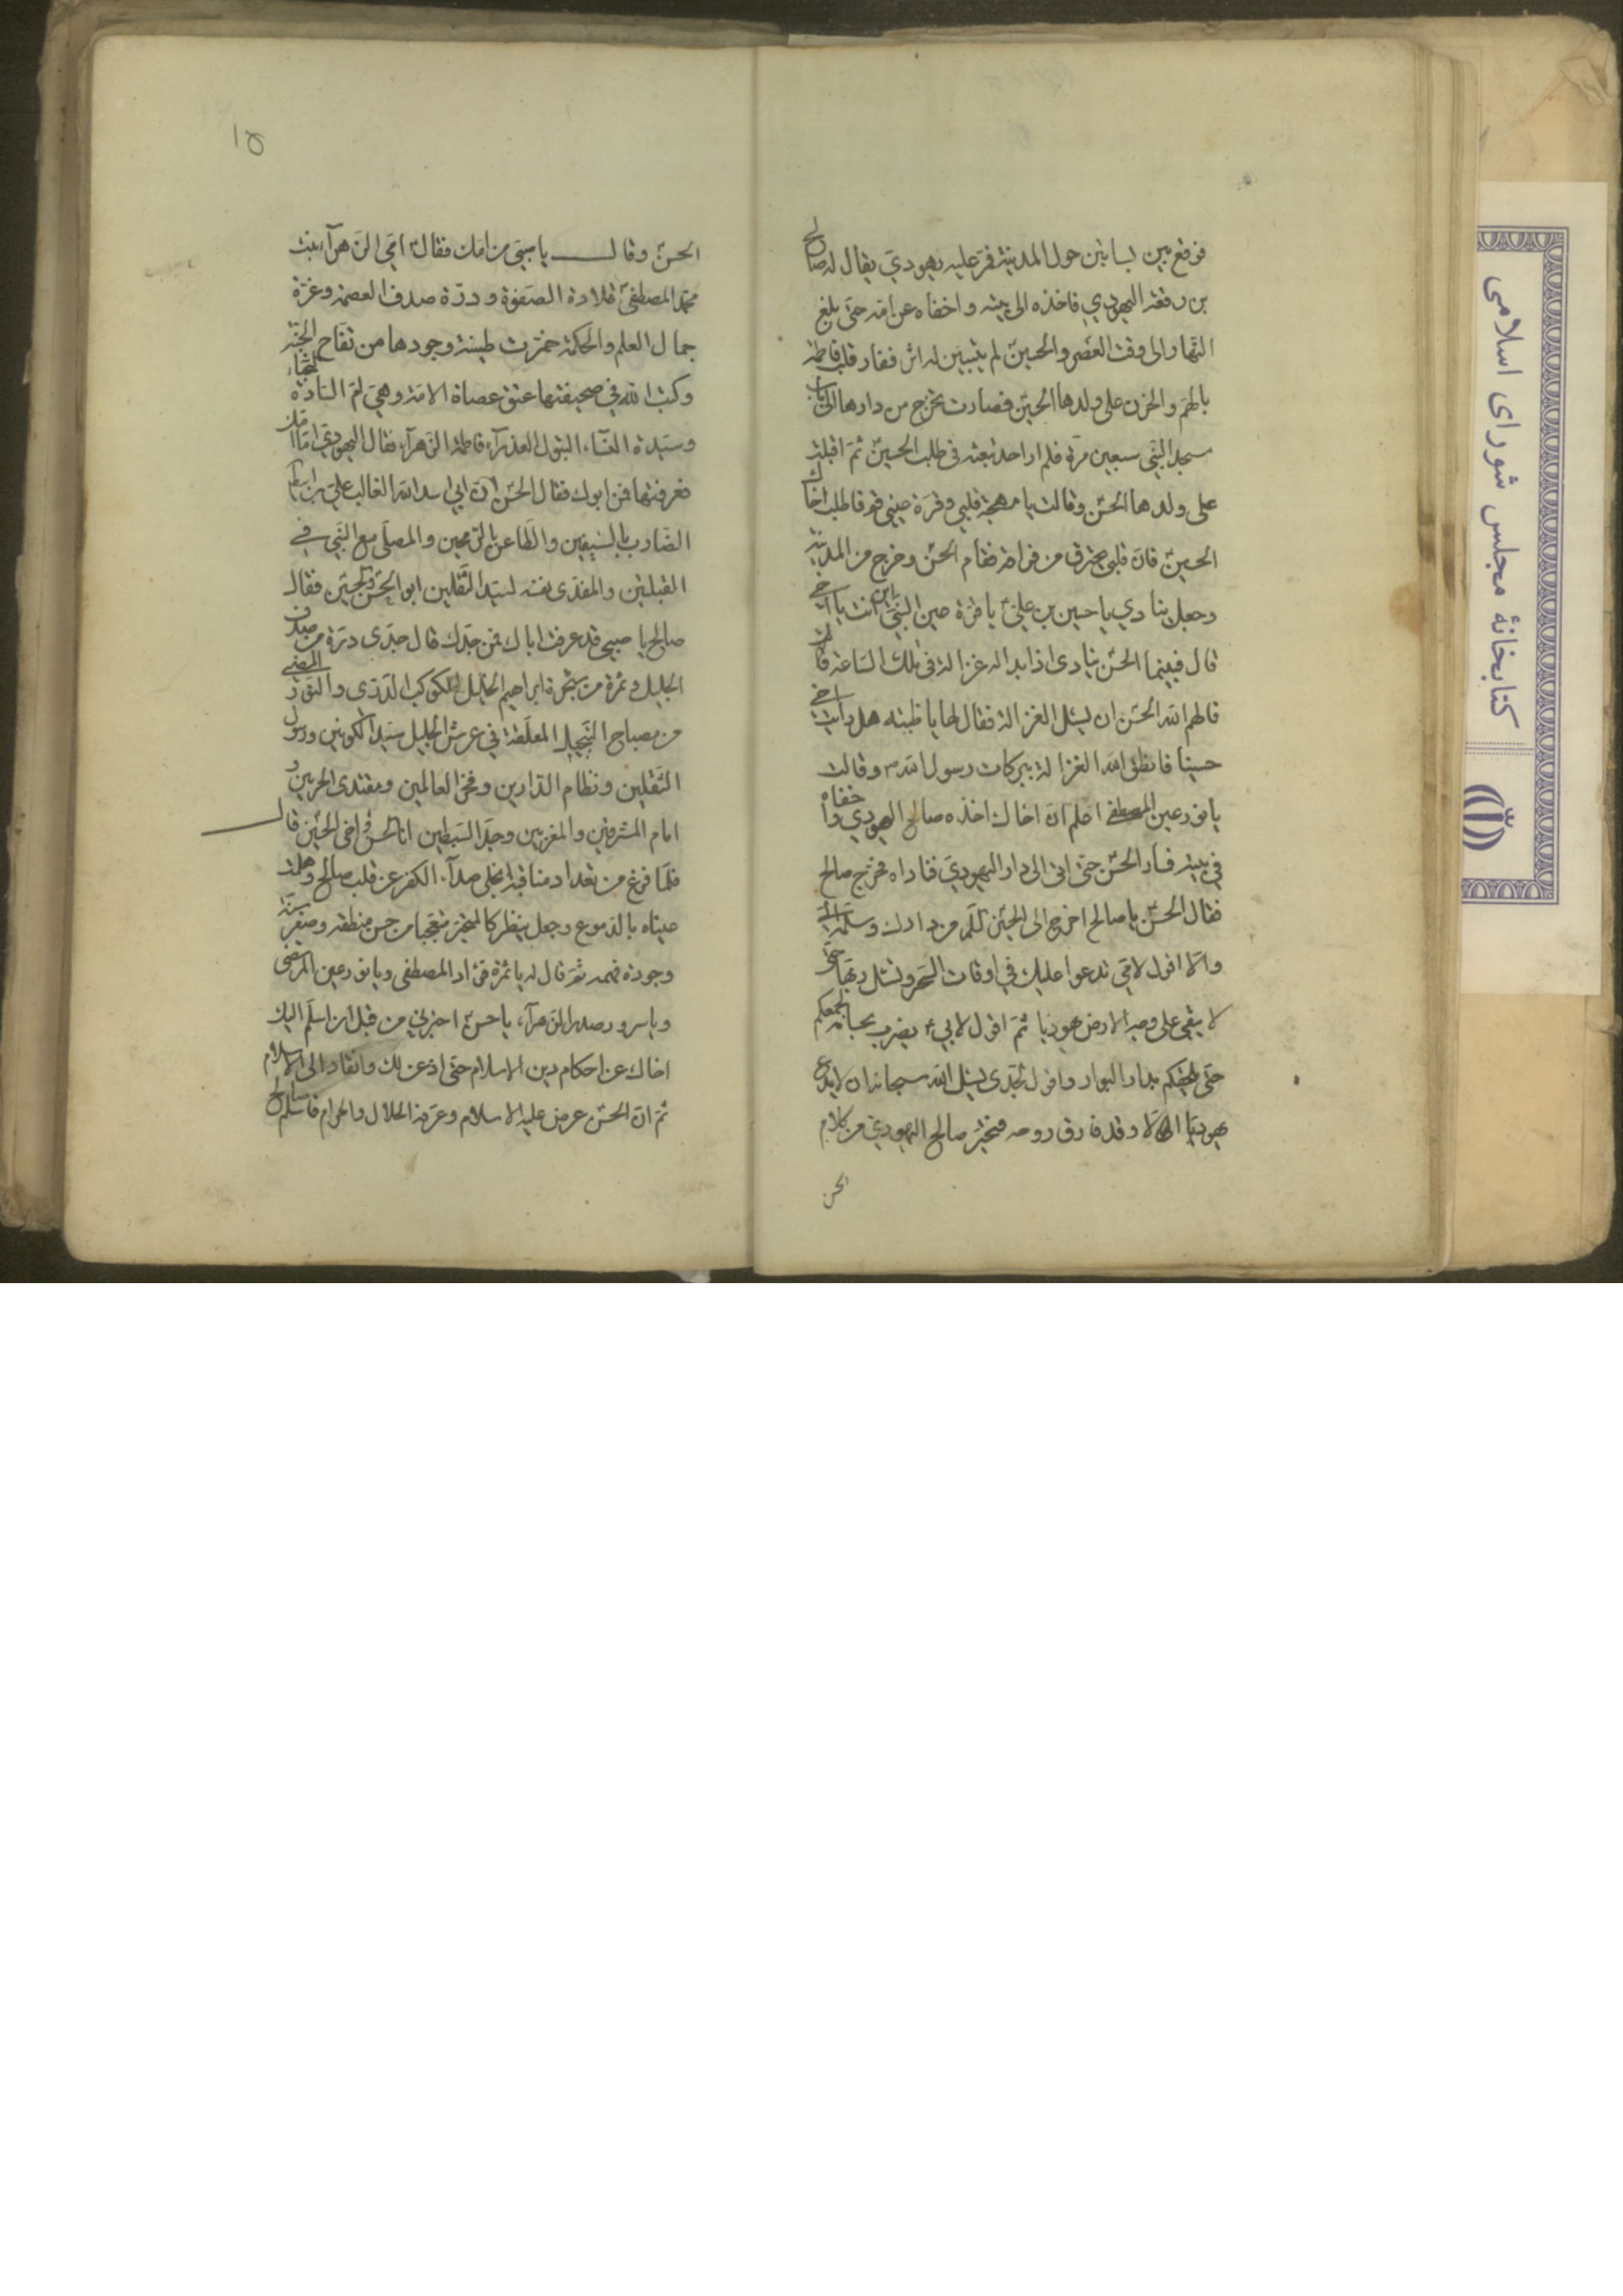 فوقع بين بساتين حول المدينة فمر عليه يهودي يقال له صالح
بن رقعة اليهودي فاخذه الى بيته و اخفاه عن امه حتى بلغ
النهار الى وقت العصر والحسين لم يتبين له اثر ففار قلب فاطمة
بالهم و الحزن على ولدها الحسين فصارت تخرج من دارها الى باب
مسجد النبي سبعين مرة فلم ار احد تبعثه فى طلب الحسين ثم اقبلت
على ولدها الحسن وقالت يا مهجة قلبي وقرة عيني قم فاطلب اخاك
الحسين فان قلبى يحترق من فراقه فقام الحسن وخرج من المدينة
وجعل ينادي يا حسين بن علي يا قرة عين النبي اين انت يا اخي
قال فبينما الحسن ينادى اذا بدا له غزالة فى تلك الساعة قال
فالهم الله الحسن ان يسئل الغزالة فقال لها يا ظبية هل رايت اخي
حسينا فانطق الله الغزالة ببركات رسول الله وقالت
يا نور عين المصطفى اعلم ان اخاك اخذه صالح اليهودي واخفاه
في بيته فسار الحسن حتى اتى الى دار اليهودي فناداه فخرج صالح
فقال الحسن يا صالح اخرج الى الحسين من دارك وسلمه الي
والا اقول لامي تدعوا عليك في اوقات السحر وتسئل ربها حتى
لا يبقى على وجه الارض يهوديا ثم اقول لابي يضرب بحسامه جمعكم
حتى يلحقكم بدار البوار واقول لجدى يسئل الله سبحانه ان لا يدع
يهوديا الا وقد فارق روحه فتحير صالح اليهودي من كلام
الحسن
١٥
الحسن وقال يا صبي من امك فقال امي الزهرآء بنت
محمد المصطفى قلادة الصفوة و درة صدف العصمة وغرة
جمال العلم والحكمة خمرت طينة وجودها من تفاح الجنة
وكتب الله في صحيفتها عتق عصاة الامة وهي ام السادة النجباء
وسيدة النساء البتول العذرآء فاطمة الزهرآء فقال اليهودي اما امك
فعرفتها فمن ابوك فقال الحسن ان ابي اسد الله الغالب علي بن ابيطالب
الضارب بالسيفين والطاعن بالرمحين والمصلى مع النبي في
القبلتين والمفدى نفسه لسيد الثقلين ابو الحسن والحسين فقال
صالح يا صبيي قد عرفت اباك فمن جدك قال جدى درة من صدف
الجليل وثمرة من شجرة ابراهيم الخليل الكوكب الدرى والنور المضيي
من مصباح التبجيل المعلقة في عرش الجليل سيد الكونين ورسول
الثقلين ونظام الدارين وفخر العالمين ومقتدى الحرمين و
امام المشرقين والمغربين وجد السبطين انا الحسن واخى الحسين قال
فلما فرغ من تعداد مناقبه انجلى صدآء الكفر عن قلب صالح وهملت
عيناه بالدموع وجعل ينظر كالمتحير متعجبا من حسن منطقه وصغر سنه
وجودة فهمه ثم قال له يا ثمرة فؤاد المصطفى ويا نور عين المرتضى
ويا سرور صدر الزهرآء يا حسن اخبرني من قبل ان اسلم اليك
اخاك عن احكام دين الاسلام حتى اذعن لك وانقاد الى الاسلام
ثم ان الحسن عرض عليه الاسلام وعرفه الحلال والحرام فاسلم صالح
كتابخانهٔ مجلس شورای اسلامی